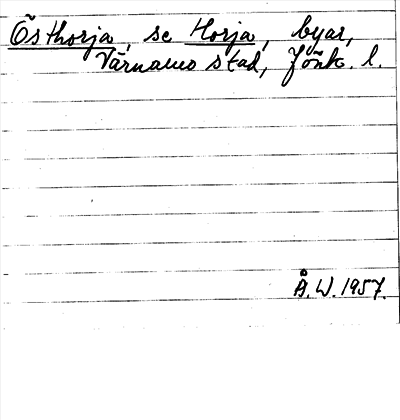 Östhorja, se Horja, byar,
Värnamo stad, Jönk. l.
Å. W. 1957.